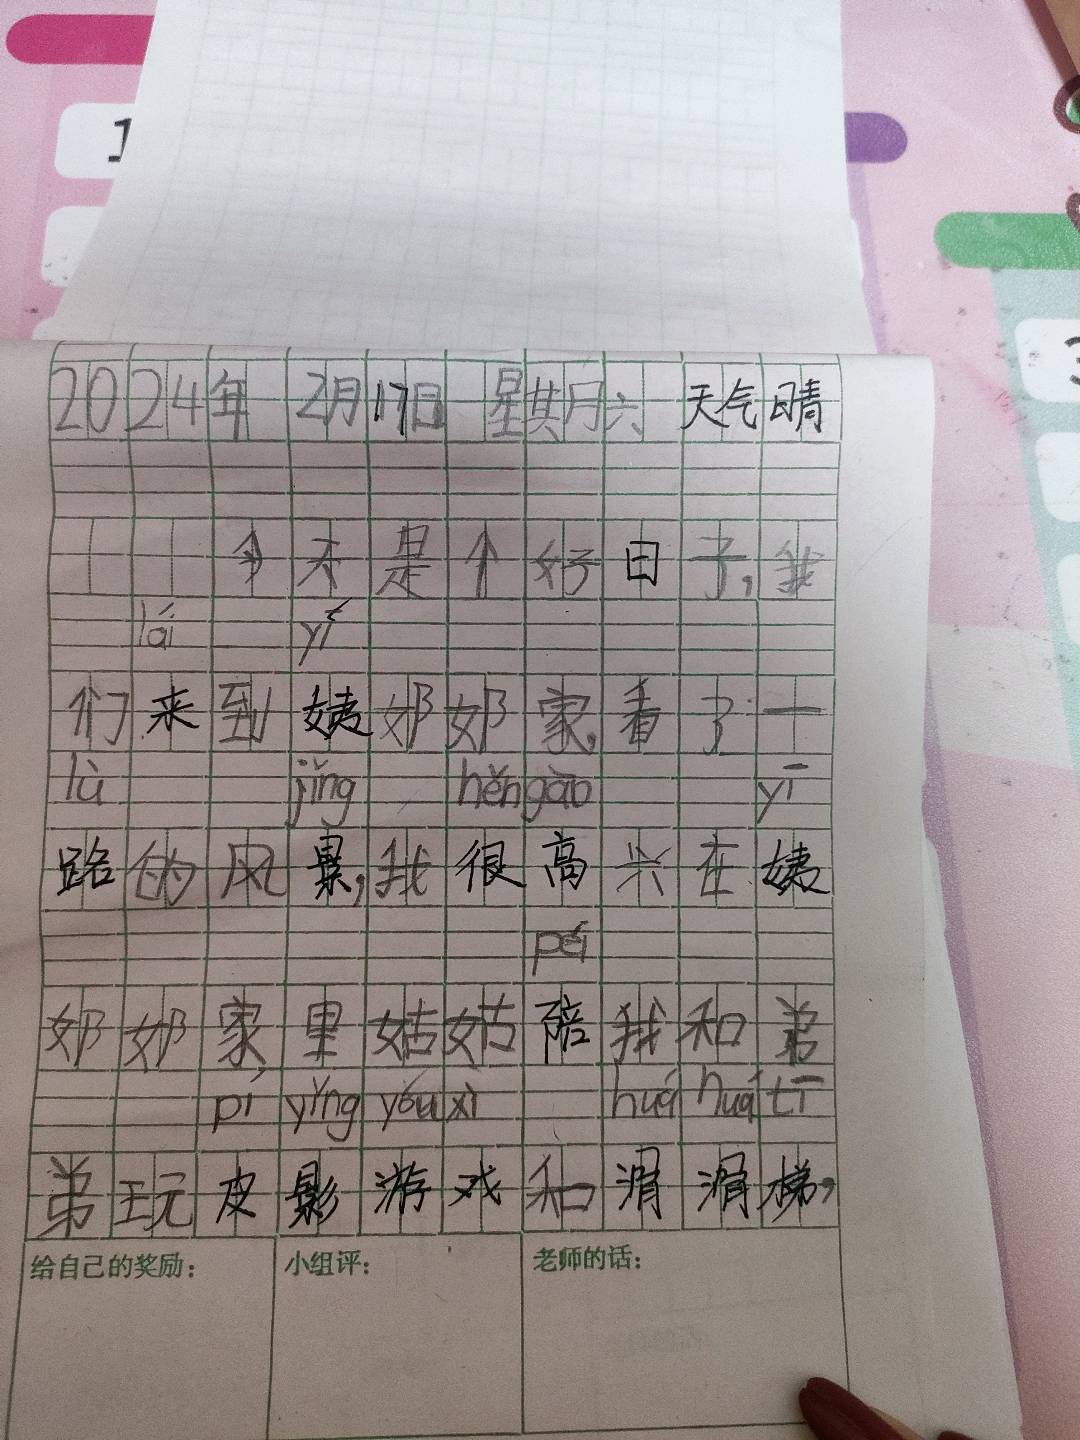 1
3
2024年 2月17日 星其月六 天气晴
今天是个好日子,我
lái yí
们来到姨奶奶家,看了一
lù jǐng hěn gāo yī
路的风景,我很高兴在姨
péi
奶奶家里姑姑陪我和弟
pí yǐng yóu xì huá huá tī
弟玩皮影游戏和滑滑梯,
给自己的奖励: 小组评: 老师的话: